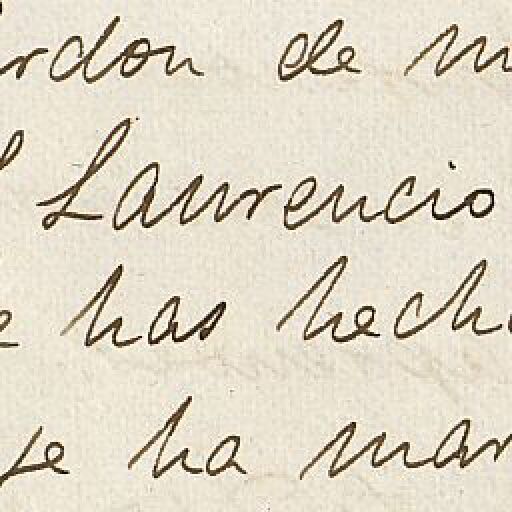 rdon de m
Laurencio
e has hech
se ha mar